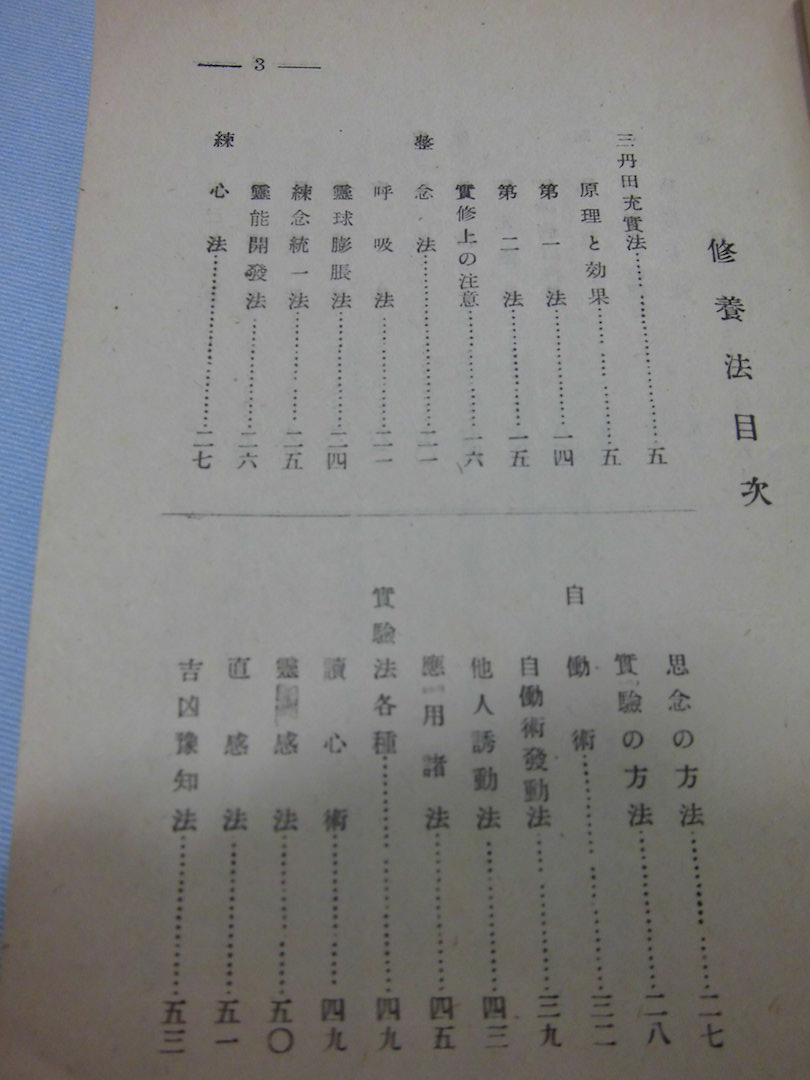 — 3 —
修養法目次
三丹田充實法……五
原理と効果……五
第一法……一四
第二法……一五
實修上の注意……一六
整念法……二一
呼吸法……二一
靈球膨脹法……二四
練念統一法……二五
靈能開發法……二六
練心法……二七
思念の方法……二七
實驗の方法……二八
自働術……三二
自働術發動法……三九
他人誘動法……四三
應用諸法……四五
實驗法各種……四九
讀心術……四九
靈感法……五〇
直感法……五一
吉凶豫知法……五三